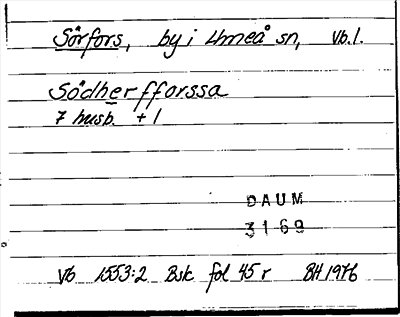 Sörfors, by i Umeå sn, Vb.l.
Södherfforssa
7 husb. + 1
DAUM
3169
Vb 1553:2 Bsk fol 45 r BH 1976